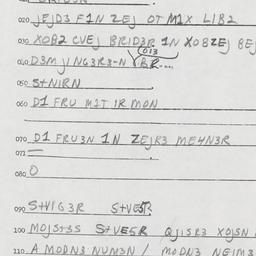 020 JEJD3 F1N ZEJ OT M1X L1B2
030 XOB2 CVEJ BRID3R 1N XOBZEJ BE
013
040 D3MJ1NG3R3-N (BR....
050 S+N1RN
060 D1 FRU M1T 1R MON
070 D1 FRU3N 1N ZEJR3 ME4N3R
071 =
080 O
090 S+V1G3R S+VEST.
100 MOJS+3S S+VESR QJ1SR3 XOJSN
110 A MODN3 NUM3N / MODN3 NE1M3